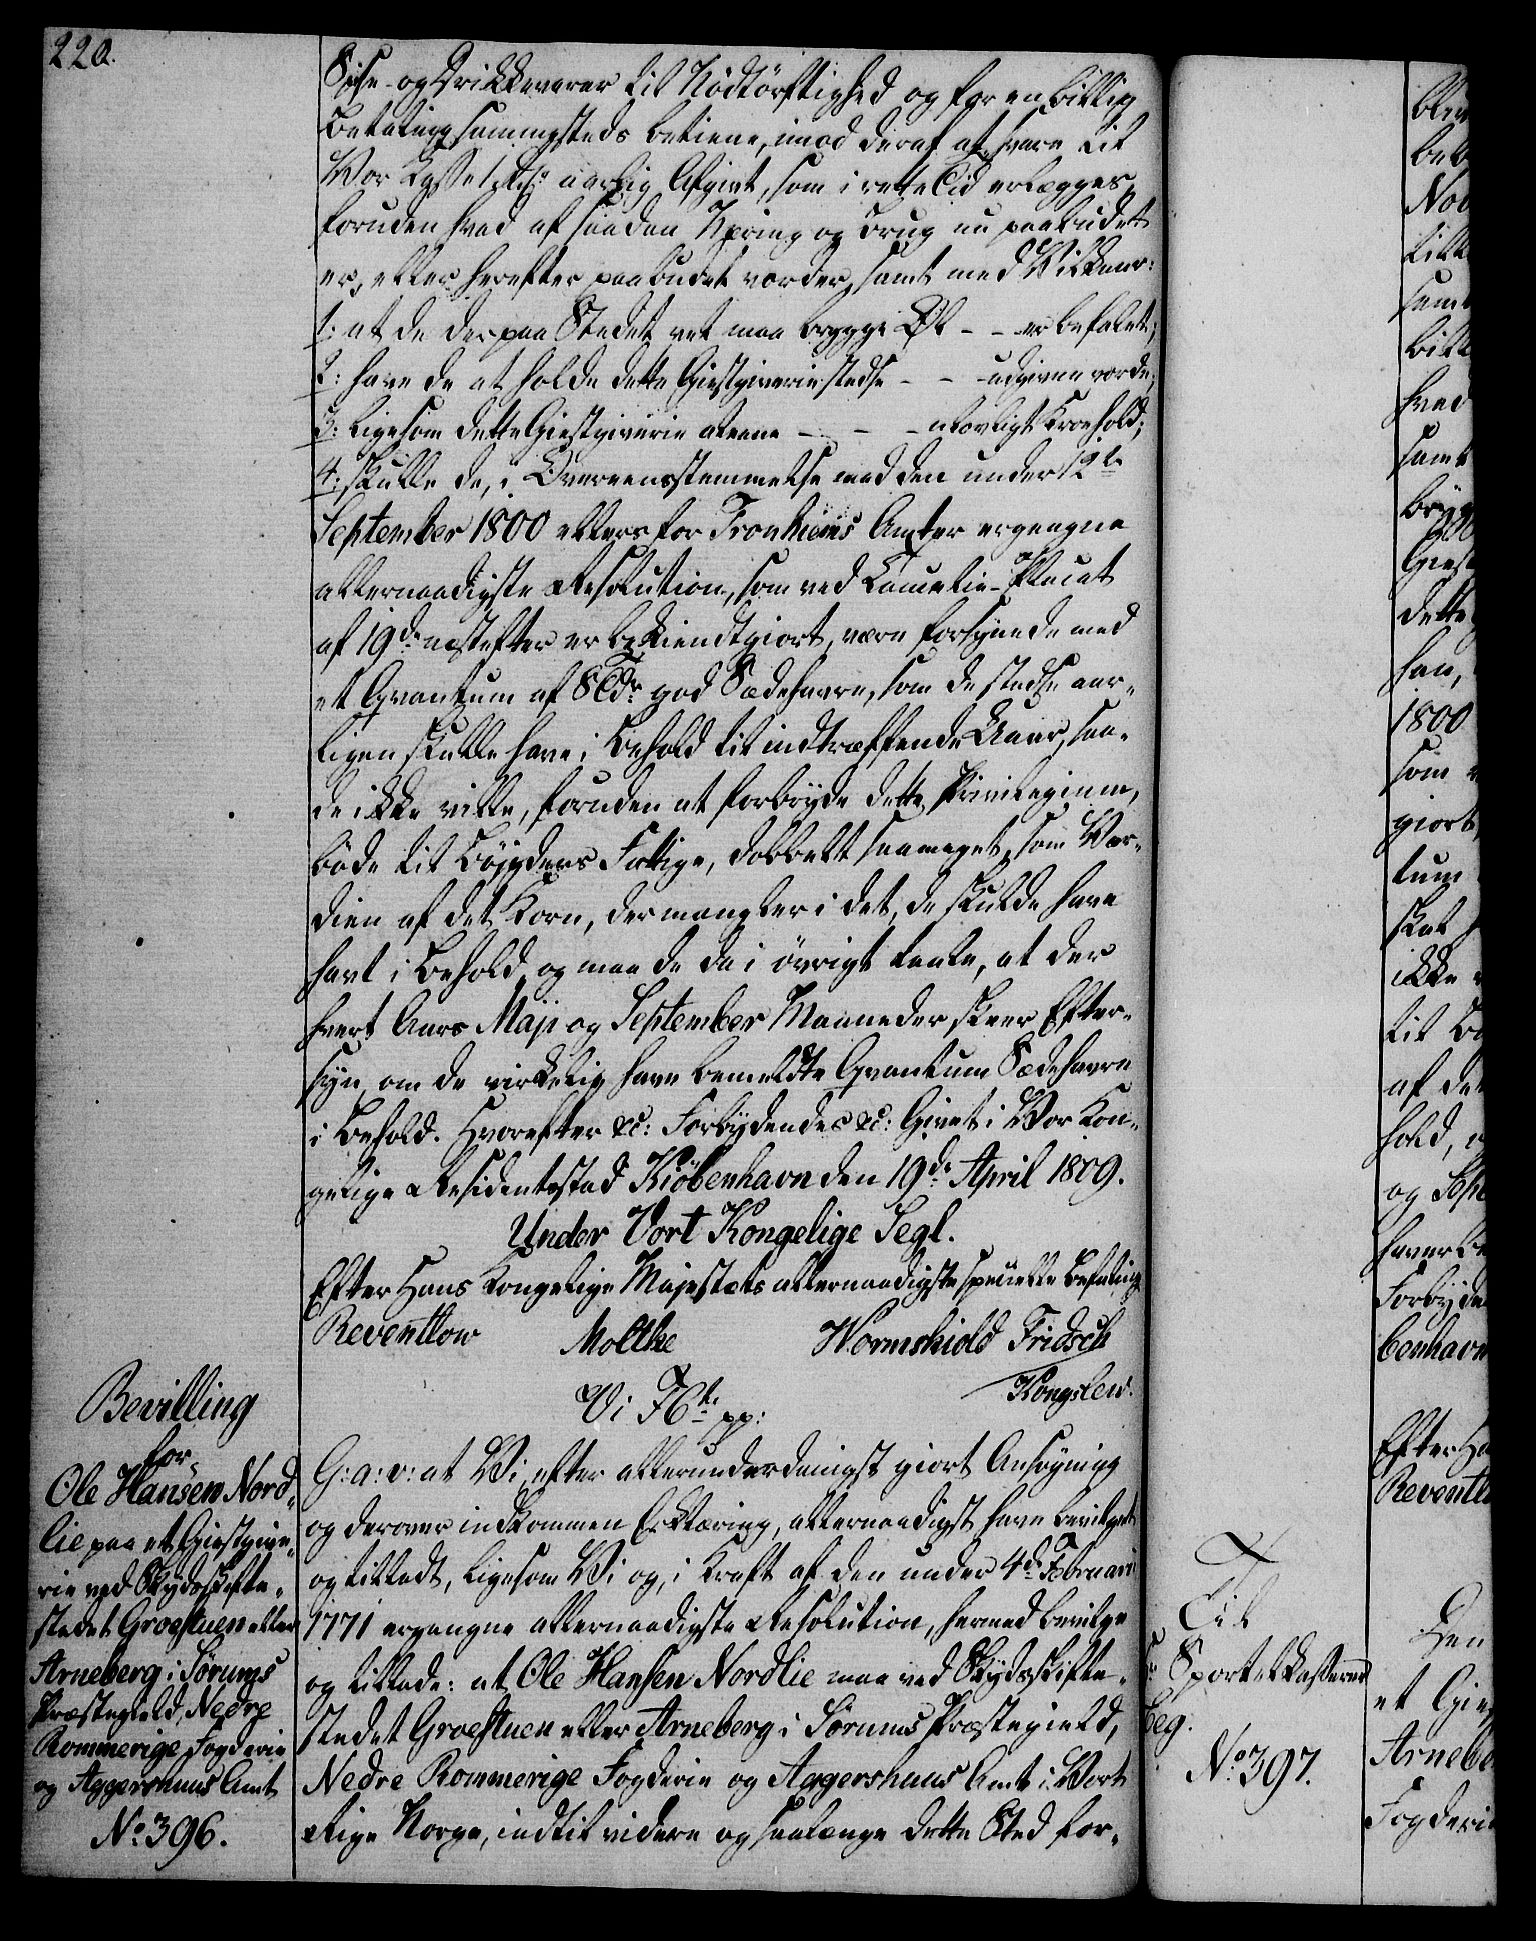 220.
Spise- og Drikkevarer til Nödtörftighed og for en billig
Betaling sammesteds betiene, imod deraf at svare til
Vor Casse 1 Rdlr aarlig Afgivt, som i rette Tid erlægges,
foruden hvad af saadan Næring og Brug nu paabudet
er, eller herefter paabudet vorder, samt med Vilkaar:
1: at de der paa Stedet vel maa brygge Øl - - er befalet;
2: have de at holde dette Giestgiverie stedse - - - udgiven vorde;
3: ligesom dette Giestgiverie alene - - - - ulovligt Kroehold;
4: skulle de, i Overeensstemmelse med den under 12te
September 1800 ellers for Tronhiems Amter ergangne
allernaadigste Resolution, som ved Cancelie-Placat
af 19de næstefter er bekiendtgiort, være forsynede med
et Qvantum af 8 Tdr god Sædehavre, som de stedse aar-
ligen skulle have i Behold til indtræffende Uaar, saa-
de ikke ville, foruden at forbryde dette Privilegium,
böde til Böygdens Fattige, dobbelt saameget, som Vær-
dien af det Korn, der mangler i det, de skulde have
havt i Behold, og maa de da i övrigt taale, at der
hvert Aars Maji og September Maaneder skeer Efter-
syn, om de virkelig have bemeldte Qvantum Sædehavre
i Behold. Hvorefter &c: Forbydendes &c: Givet i Vor Kon-
gelige Residentsstad Kiöbenhavn den 19de April 1809.
Under Vort Kongelige Segl.
Efter Hans Kongelige Majestæts allernaadigste specielle Befaling
Reventlow Moltke Wormskiold Fridsch
Kongslew.
Bevilling
for
Ole Hansen Nord-
lie paa et Giestgive-
rie ved Skydsskifte-
stedet Groestuen eller
Arneberg i Sörums
Præstegield, Nedre
Rommerige Fogderie
og Aggershuus Amt
No 396.
Vi F6te pp:
G: a: v: at Vi, efter allerunderdanigst giort Ansögning
og derover indkommen Erklæring, allernaadigst have bevilget
og tilladt, ligesom Vi og, i Kraft af den under 4de Februarii
1771 ergangne allernaadigste Resolution, hermed bevilge
og tillade: at Ole Hansen Nordlie maa ved Skydsskifte-
stedet Groestuen eller Arneberg i Sörums Præstegield,
Nedre Rommerige Fogderie og Aggershuus Amt i Vort
Rige Norge, indtil videre og saalænge dette Sted for-
Til
Sportelkasserer
No 397.
1800
som
giort,
tum
ikke
til
af
hold,
og
benhavn
Efter
Den
et